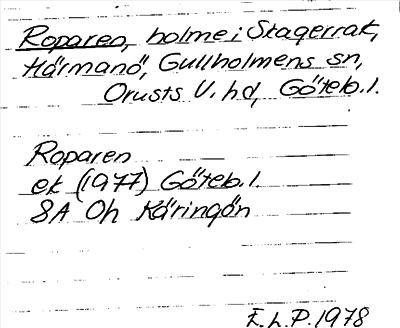 Roparen, holme i Skagerrak,
Härmanö, Gullholmens sn,
Orusts V. hd, Göteb. l.
Roparen
ek (1977) Göteb. l.
8A Oh Käringön
E.L.P. 1978